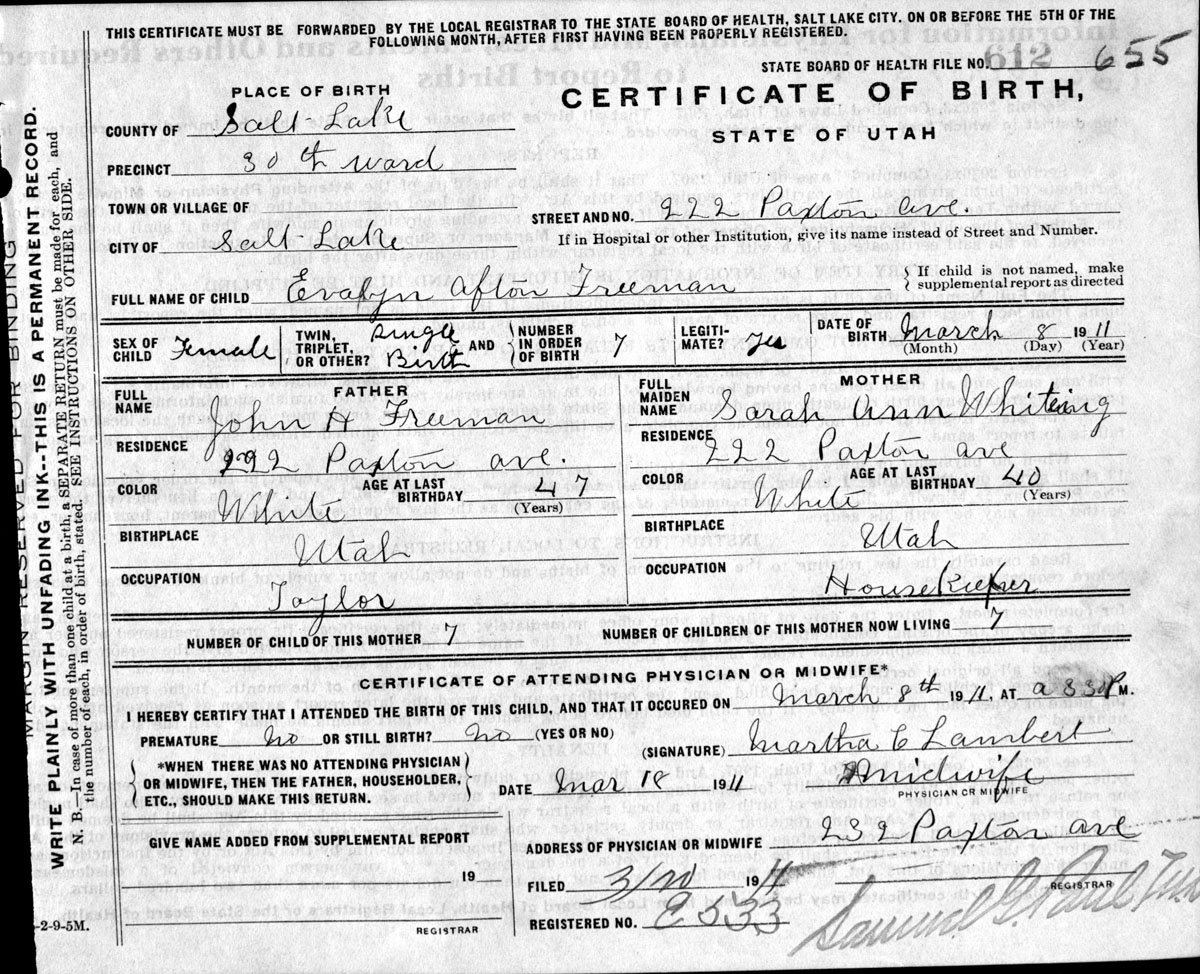 THIS CERTIFICATE MUST BE FORWARDED BY THE LOCAL REGISTRAR TO THE STATE BOARD OF HEALTH, SALT LAKE CITY. ON OR BEFORE THE 5TH OF THE
FOLLOWING MONTH, AFTER FIRST HAVING BEEN PROPERLY REGISTERED.
STATE BOARD OF HEALTH FILE NO. 612 655
PLACE OF BIRTH
CERTIFICATE OF BIRTH,
STATE OF UTAH
COUNTY OF Salt Lake
PRECINCT 30th ward
TOWN OR VILLAGE OF
STREET AND NO. 222 Paxton ave.
CITY OF Salt Lake
If in Hospital or other Institution, give its name instead of Street and Number.
FULL NAME OF CHILD Evalyn Afton Freeman
{ If child is not named, make
supplemental report as directed
SEX OF CHILD Female
TWIN, TRIPLET, OR OTHER? Single Birth
AND { NUMBER IN ORDER OF BIRTH 7
LEGITIMATE? Yes
DATE OF BIRTH March 8 1911
(Month) (Day) (Year)
FATHER
FULL NAME John H Freeman
RESIDENCE 222 Paxton ave.
COLOR White
AGE AT LAST BIRTHDAY 47
(Years)
BIRTHPLACE Utah
OCCUPATION Taylor
MOTHER
FULL MAIDEN NAME Sarah Ann Whiting
RESIDENCE 222 Paxton ave
COLOR White
AGE AT LAST BIRTHDAY 40
(Years)
BIRTHPLACE Utah
OCCUPATION HouseKeeper
NUMBER OF CHILD OF THIS MOTHER 7
NUMBER OF CHILDREN OF THIS MOTHER NOW LIVING 7
CERTIFICATE OF ATTENDING PHYSICIAN OR MIDWIFE*
I HEREBY CERTIFY THAT I ATTENDED THE BIRTH OF THIS CHILD, AND THAT IT OCCURED ON March 8th 1911. AT M.
PREMATURE No OR STILL BIRTH? No (YES OR NO)
(SIGNATURE) Martha C Lambert
{ *WHEN THERE WAS NO ATTENDING PHYSICIAN
OR MIDWIFE, THEN THE FATHER, HOUSEHOLDER,
ETC., SHOULD MAKE THIS RETURN. }
DATE Mar 18 1911
midwife
PHYSICIAN OR MIDWIFE
GIVE NAME ADDED FROM SUPPLEMENTAL REPORT
19
REGISTRAR
ADDRESS OF PHYSICIAN OR MIDWIFE Paxton ave
FILED 3/20 1911
REGISTRAR
REGISTERED NO.
Samuel G. Paul
2-9-5M.
MARGIN RESERVED FOR BINDING
WRITE PLAINLY WITH UNFADING INK--THIS IS A PERMANENT RECORD.
N. B.—In case of more than one child at a birth, a SEPARATE RETURN must be made for each, and
the number of each, in order of birth, stated. SEE INSTRUCTIONS ON OTHER SIDE.